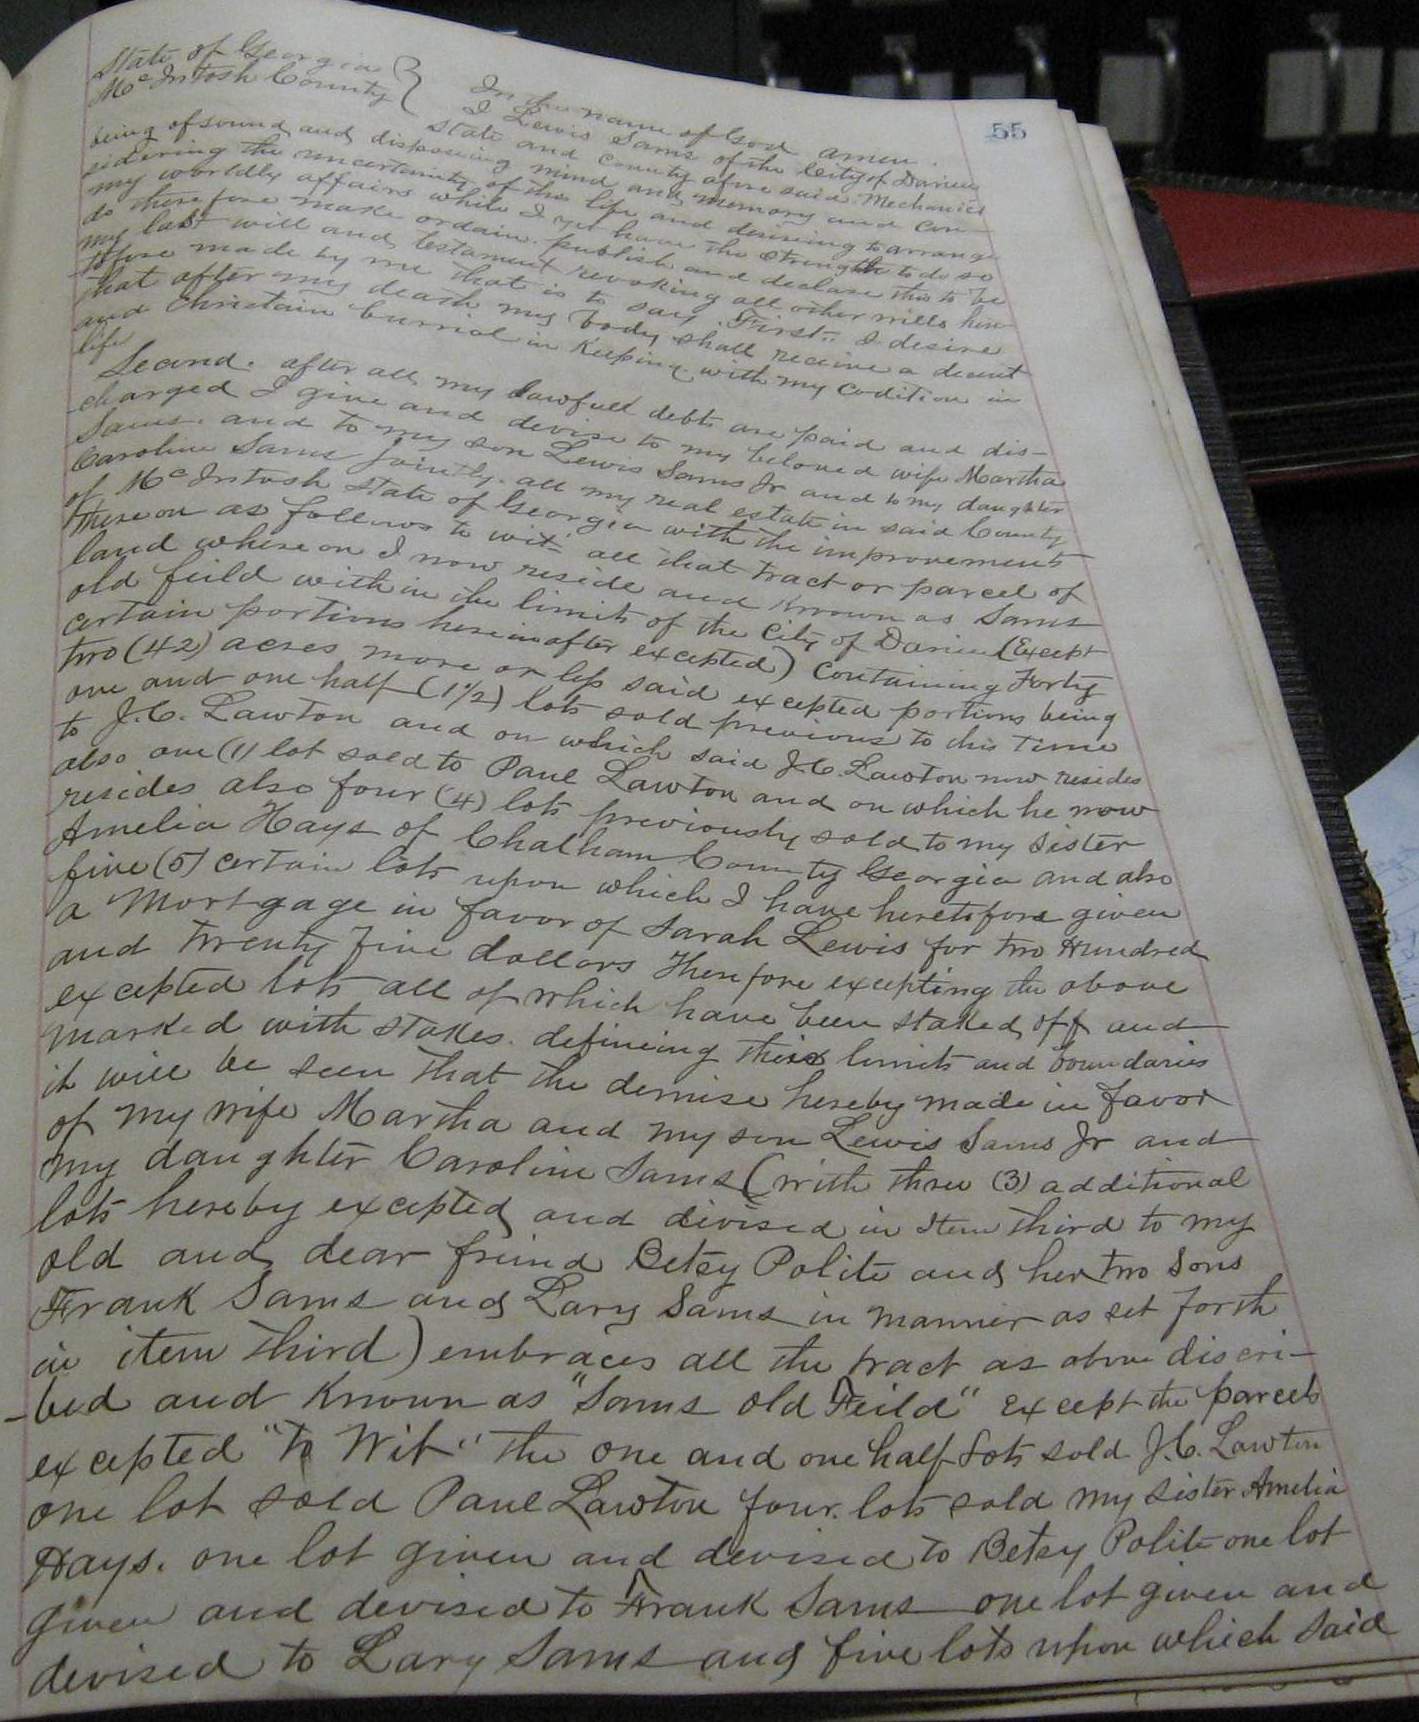 55
State of Georgia }
McIntosh County }
In the name of God amen.
I Lewis Sams of the City of Darien
State and County afore said Mechanics
being of sound and disposing mind and memory and con-
sidering the uncertainty of this life and desiring to arrange
my worldly affairs while I yet have the strength to do so
do therefore make ordain. publish and declare this to be
my last will and testament revoking all other wills here
tofore made by me that is to say. First. I desire
that after my death my body shall receive a decent
and Christain burrial in Keeping with my codition in
life
Second. after all my lawfull debts are paid and dis-
charged I give and devise to my beloved wife Martha
Sams. and to my son Lewis Sams Jr and to my daughter
Caroline Sams jointly. all my real estate in said County
of McIntosh State of Georgia with the improvements
thereon as follows to wit- all that tract or parcel of
land whereon I now reside and Known as Sams
old feild within the limits of the City of Darien (Except
certain portions hereinafter excepted) Containing Forty
two (42) acres more or less said excepted portions being
one and one half (1 1/2) lots sold previous to this Time
to J.C. Lawton and on which said J.C. Lawton now resides
also one (1) lot sold to Paul Lawton and on which he now
resides also four (4) lots previously sold to my Sister
Amelia Hays of Chatham County Georgia and also
five (5) certain lots upon which I have heretofore given
a Mortgage in favor of Sarah Lewis for two Hundred
and twenty five dollars Therefore excepting the above
excepted lots all of which have been staked off and
marked with stakes. defineing their limits and boundaries
it will be seen that the demise hereby made in favor
of my wife Martha and my son Lewis Sams Jr and
my daughter Caroline Sams (with three (3) additional
lots hereby excepted and divised in Item third to my
old and dear freind Betsy Polite and her two Sons
Frank Sams and Lary Sams in manner as set forth
in item third) embraces all the tract as above discri-
-bed and Known as "Sams old Feild" Except the parcels
excepted "to Wit" the one and one half Lots sold J.C. Lawton
one lot sold Paul Lawton four. lots sold my Sister Amelia
Hays. one lot given and devised to Betsy Polite one lot
given and devised to Frank Sams one lot given and
devised to Lary Sams and five lots upon which said